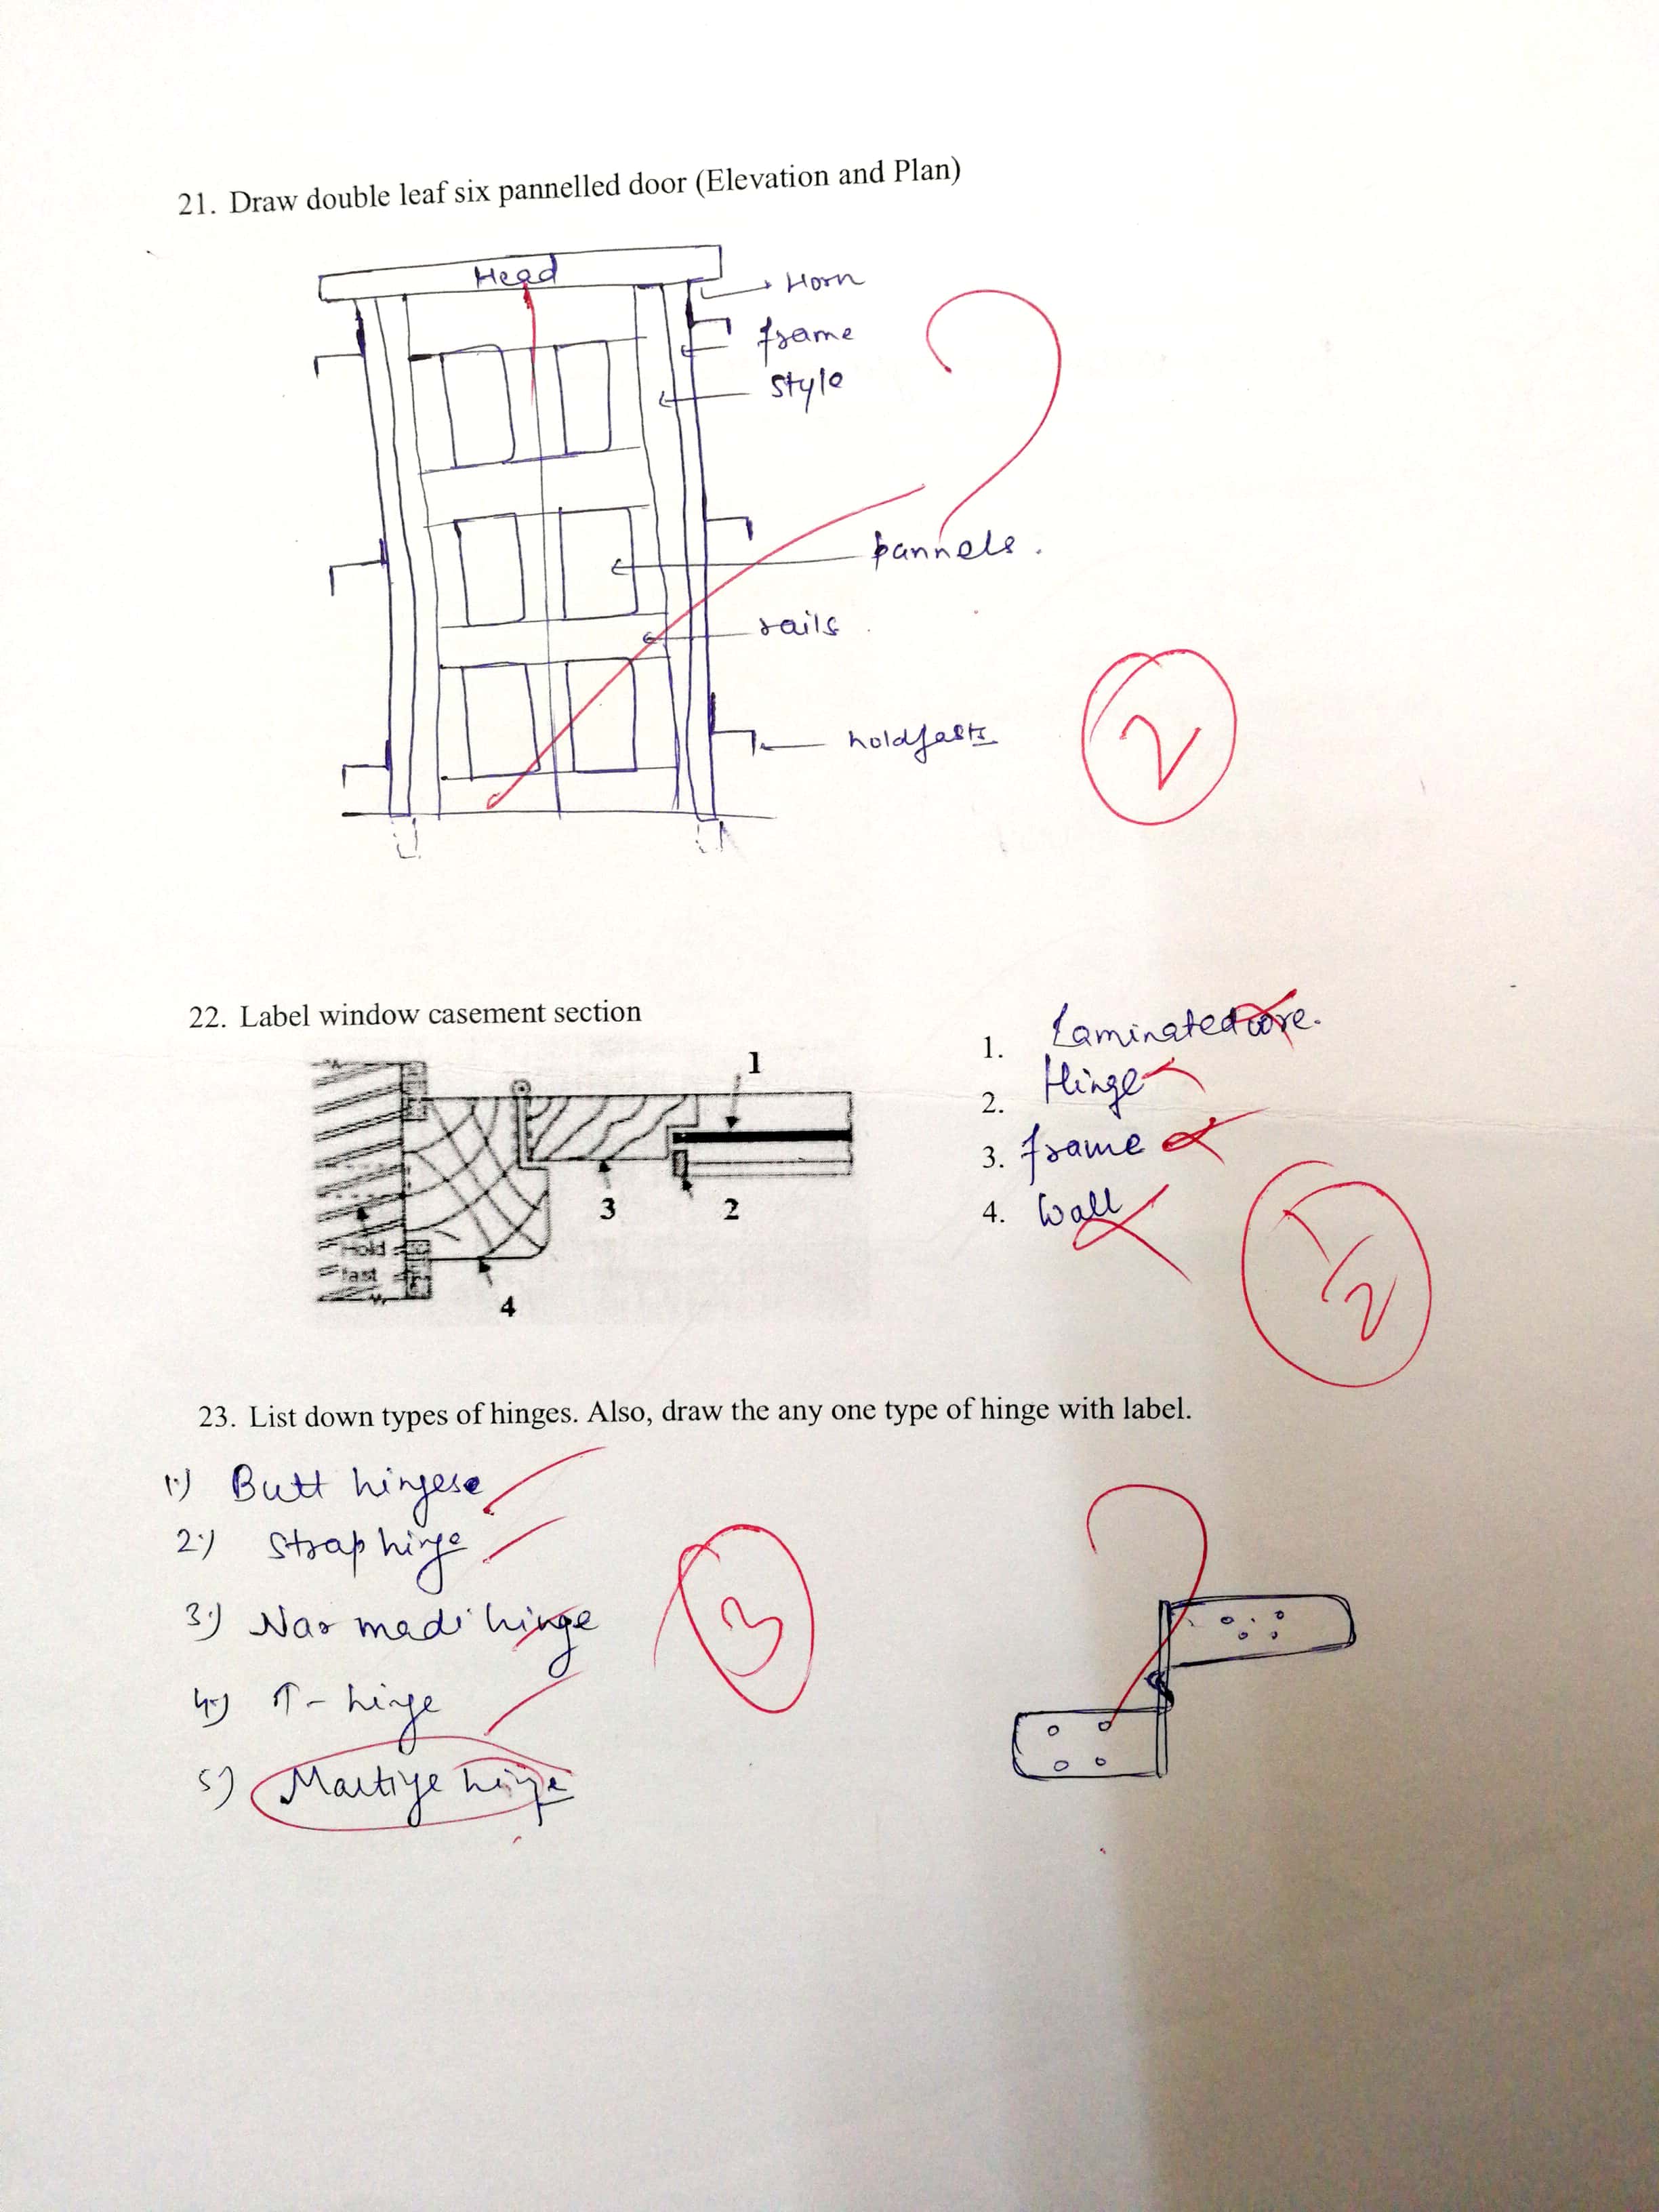 21. Draw double leaf six pannelled door (Elevation and Plan)
Head
Horn
frame
style
pannels.
rails
holdfasts
2
22. Label window casement section
1
3
2
4
Hold
fast
1. Laminated core.
2. Hinge
3. frame
4. Wall
1/2
23. List down types of hinges. Also, draw the any one type of hinge with label.
1) Butt hingese
2) Strap hinge
3) Nar madi hinge
4) T-hinge
5) hinge
3